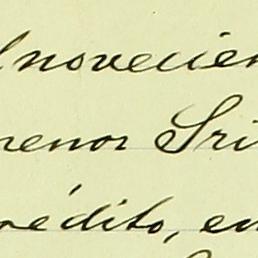 lnovecien
menor Sri
rédito, en